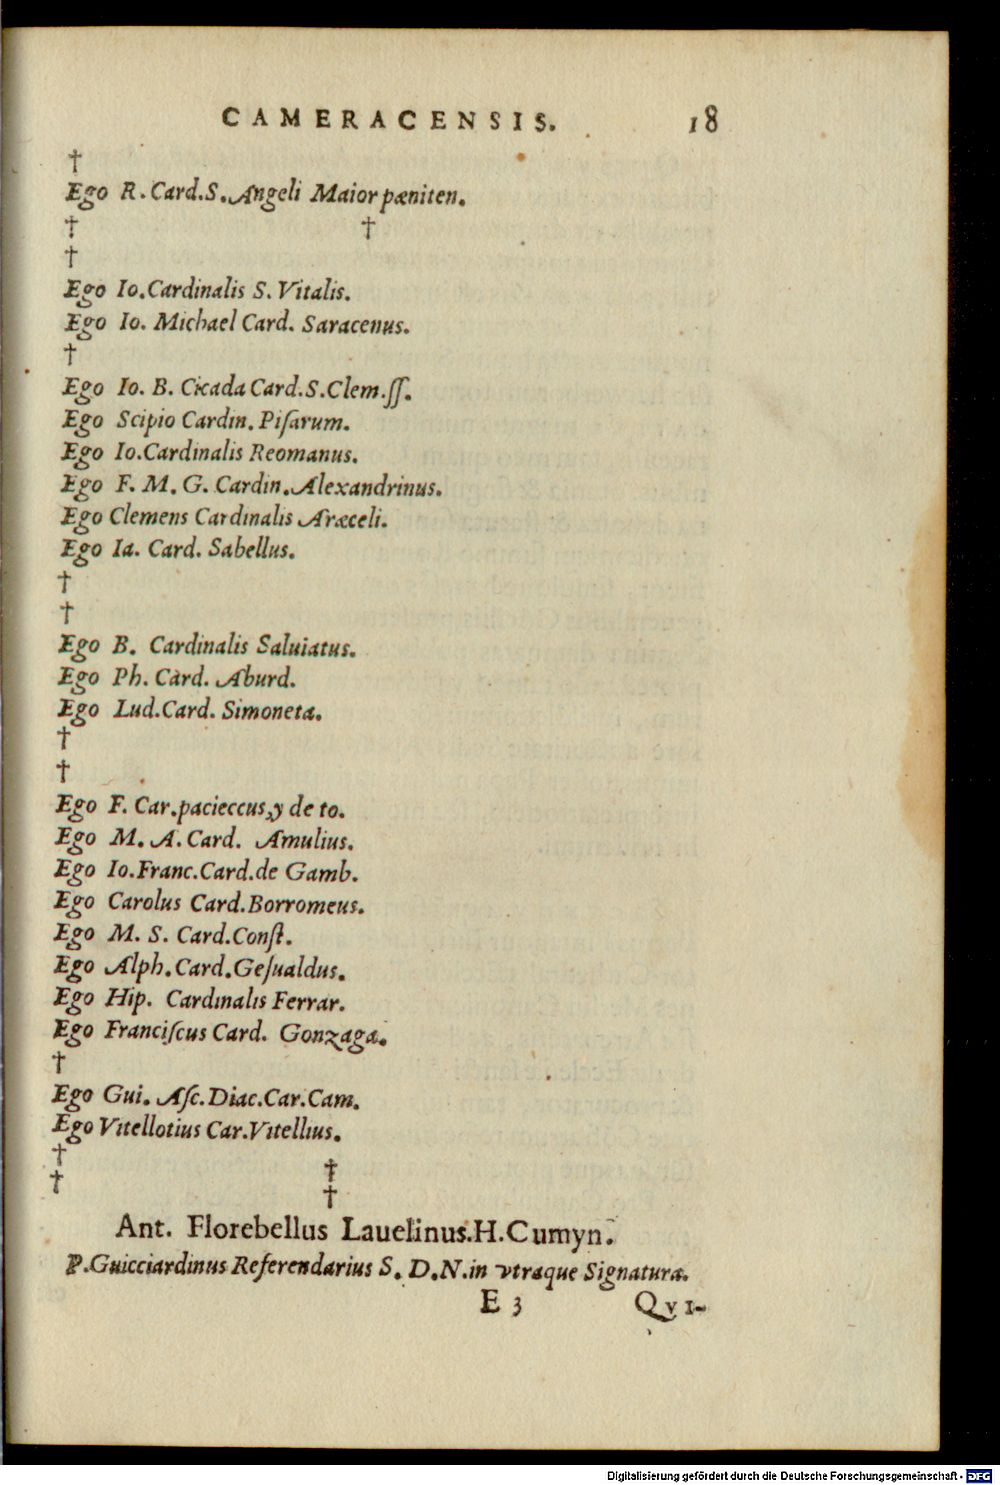 CAMERACENSIS. 18
†
Ego R. Card. S. Angeli Maior pæniten.
† †
†
Ego Io. Cardinalis S. Vitalis.
Ego Io. Michael Card. Saracenus.
†
Ego Io. B. Cicada Card. S. Clem. ſſ.
Ego Scipio Cardin. Piſarum.
Ego Io. Cardinalis Reomanus.
Ego F. M. G. Cardin. Alexandrinus.
Ego Clemens Cardinalis Aræceli.
Ego Ia. Card. Sabellus.
†
†
Ego B. Cardinalis Saluiatus.
Ego Ph. Card. Aburd.
Ego Lud. Card. Simoneta.
†
†
Ego F. Car. pacieccus, y de to.
Ego M. A. Card. Amulius.
Ego Io. Franc. Card. de Gamb.
Ego Carolus Card. Borromeus.
Ego M. S. Card. Conſt.
Ego Alph. Card. Geſualdus.
Ego Hip. Cardinalis Ferrar.
Ego Franciſcus Card. Gonzaga.
†
Ego Gui. Aſc. Diac. Car. Cam.
Ego Vitellotius Car. Vitellius.
† †
† †
Ant. Florebellus Lauelinus. H. Cumyn.
P. Guicciardinus Referendarius S. D. N. in vtraque Signatura.
E 3 Qvi-
Digitalisierung gefördert durch die Deutsche Forschungsgemeinschaft - DFG